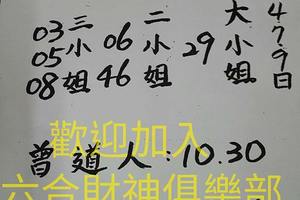 4790日
大小姐
29
二小姐
06
46
三小姐
03
05
08
歡迎加入
曾道人:10.30
六合財神俱樂部